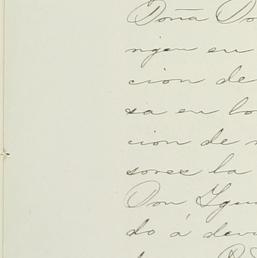 Doña Do
ngen en
cion de
sa en lo
cion de
sores ba
Don Igna
do á dev